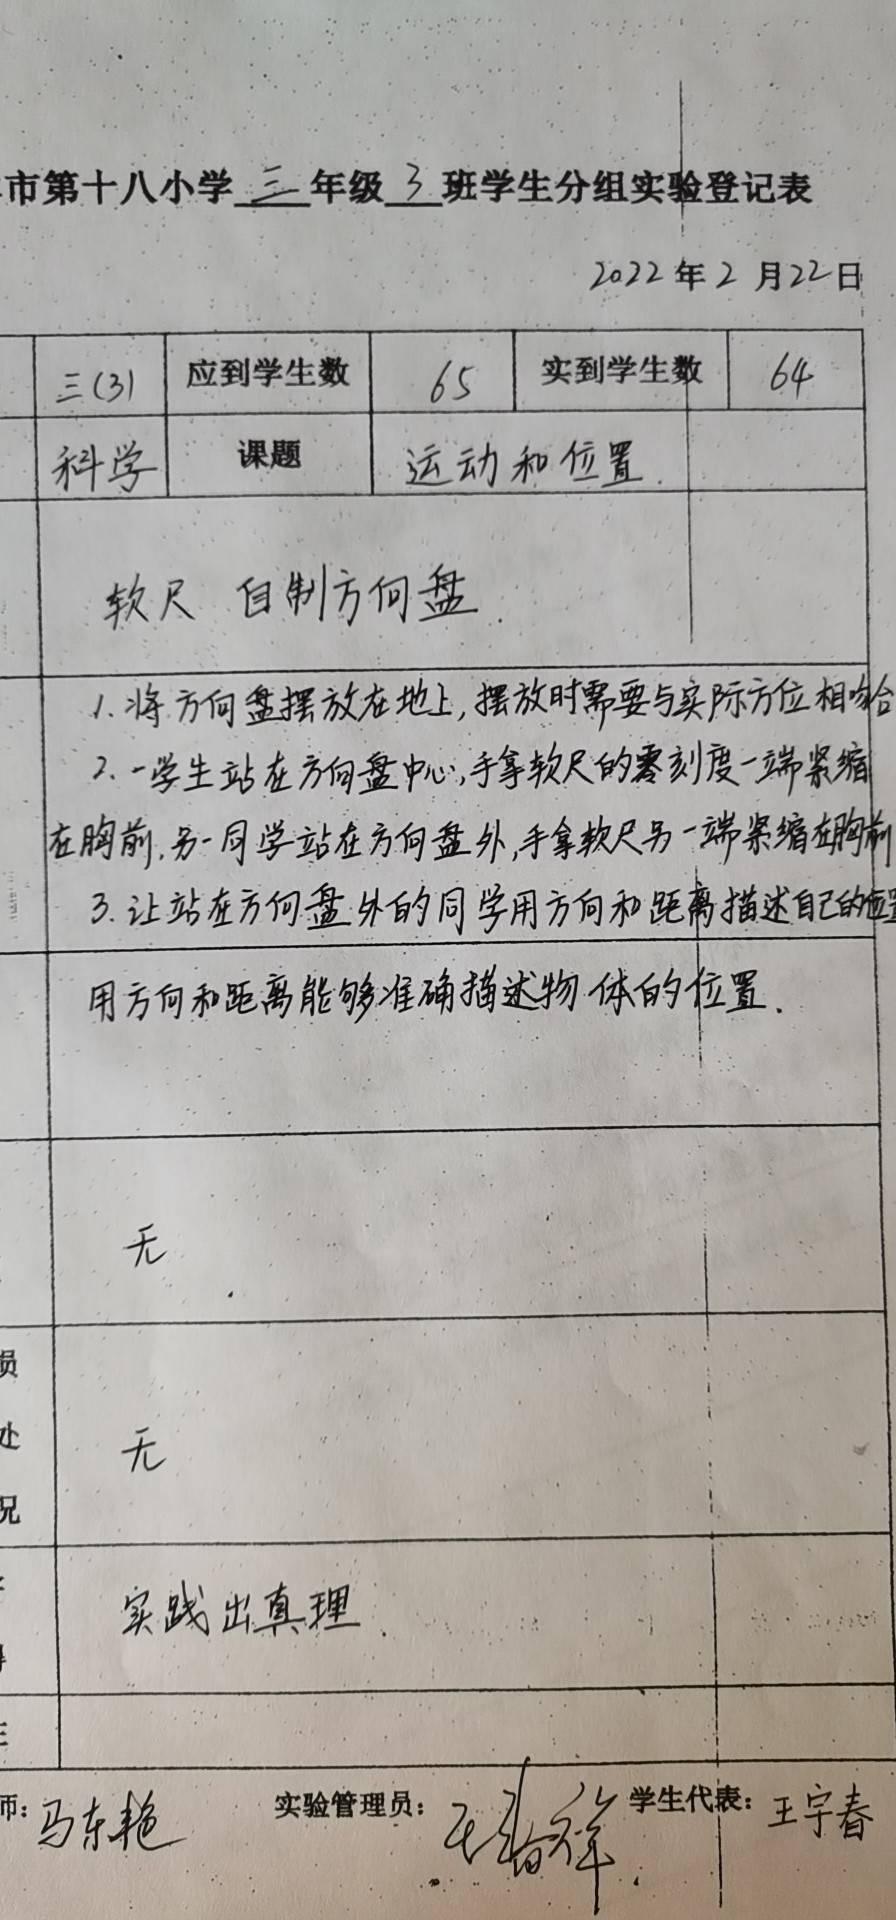 市第十八小学三年级3班学生分组实验登记表
2022年2月22日
三(3) 应到学生数 65 实到学生数 64
科学 课题 运动和位置.
软尺 自制方向盘.
1.将方向盘摆放在地上,摆放时需要与实际方位相吻合
2.一学生站在方向盘中心,手拿软尺的零刻度一端紧缩
在胸前,另一同学站在方向盘外,手拿软尺另一端紧缩在胸前
3.让站在方向盘外的同学用方向和距离描述自己的位置
用方向和距离能够准确描述物体的位置.
无
损
处
无
况
实践出真理.
师: 马东艳 实验管理员: 学生代表: 王宇春